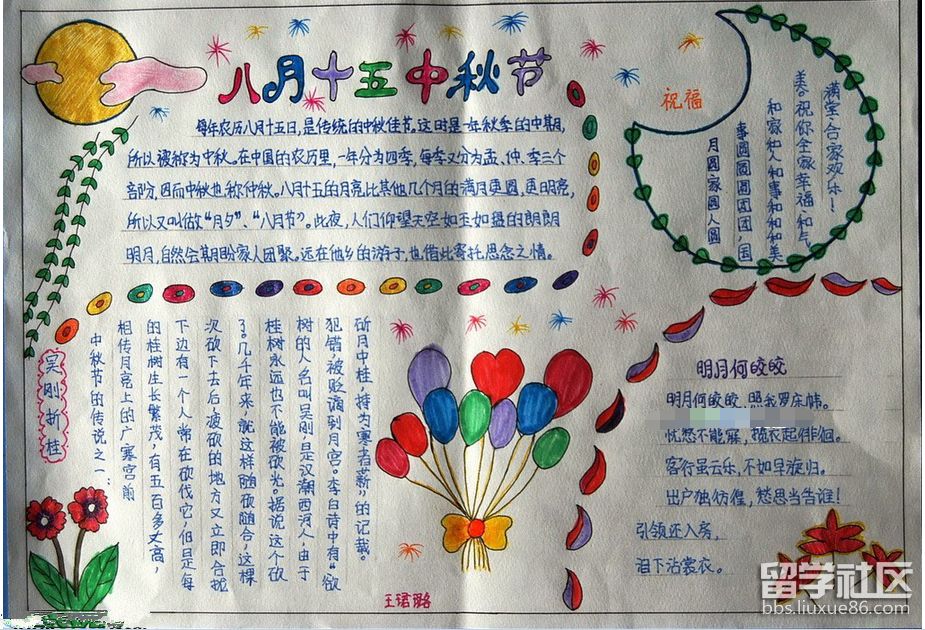 八月十五中秋节
每年农历八月十五日,是传统的中秋佳节。这时是一年秋季的中期,
所以被称为中秋。在中国的农历里,一年分为四季,每季又分为孟、仲、季三个
部分,因而中秋也称仲秋。八月十五的月亮比其他几个月的满月更圆,更明亮,
所以又叫做“月夕”、“八月节”。此夜,人们仰望天空如玉如盘的朗朗
明月,自然会期盼家人团聚。远在他乡的游子,也借此寄托思念之情。
祝福
满堂,合家欢乐!
美。祝你全家幸福·和气
和家和人和事和和和美
事圆圆圆团团,国
月圆家圆人圆
吴刚折桂
中秋节的传说之一:
相传月亮上的广寒宫前
的桂树生长繁茂,有五百多丈高,
下边有一个人常在砍伐它,但是每
次砍下去后,被砍的地方又立即合拢
了。几千年来,就这样随砍随合,这棵
桂树永远也不能被砍光。据说这个砍
树的人名叫吴刚,是汉潮西河人,由于
犯错,被贬谪到月宫。李白诗中有“欲
斫月中桂,持为寒者薪”的记载。
明月何皎皎
明月何皎皎,照我罗床帏。
忧愁不能寐,揽衣起徘徊。
客行虽云乐,不如早旋归。
出户独彷徨,愁思当告谁!
引领还入房,
泪下沾裳衣。
王珺璐
留学社区
bbs.liuxue86.com